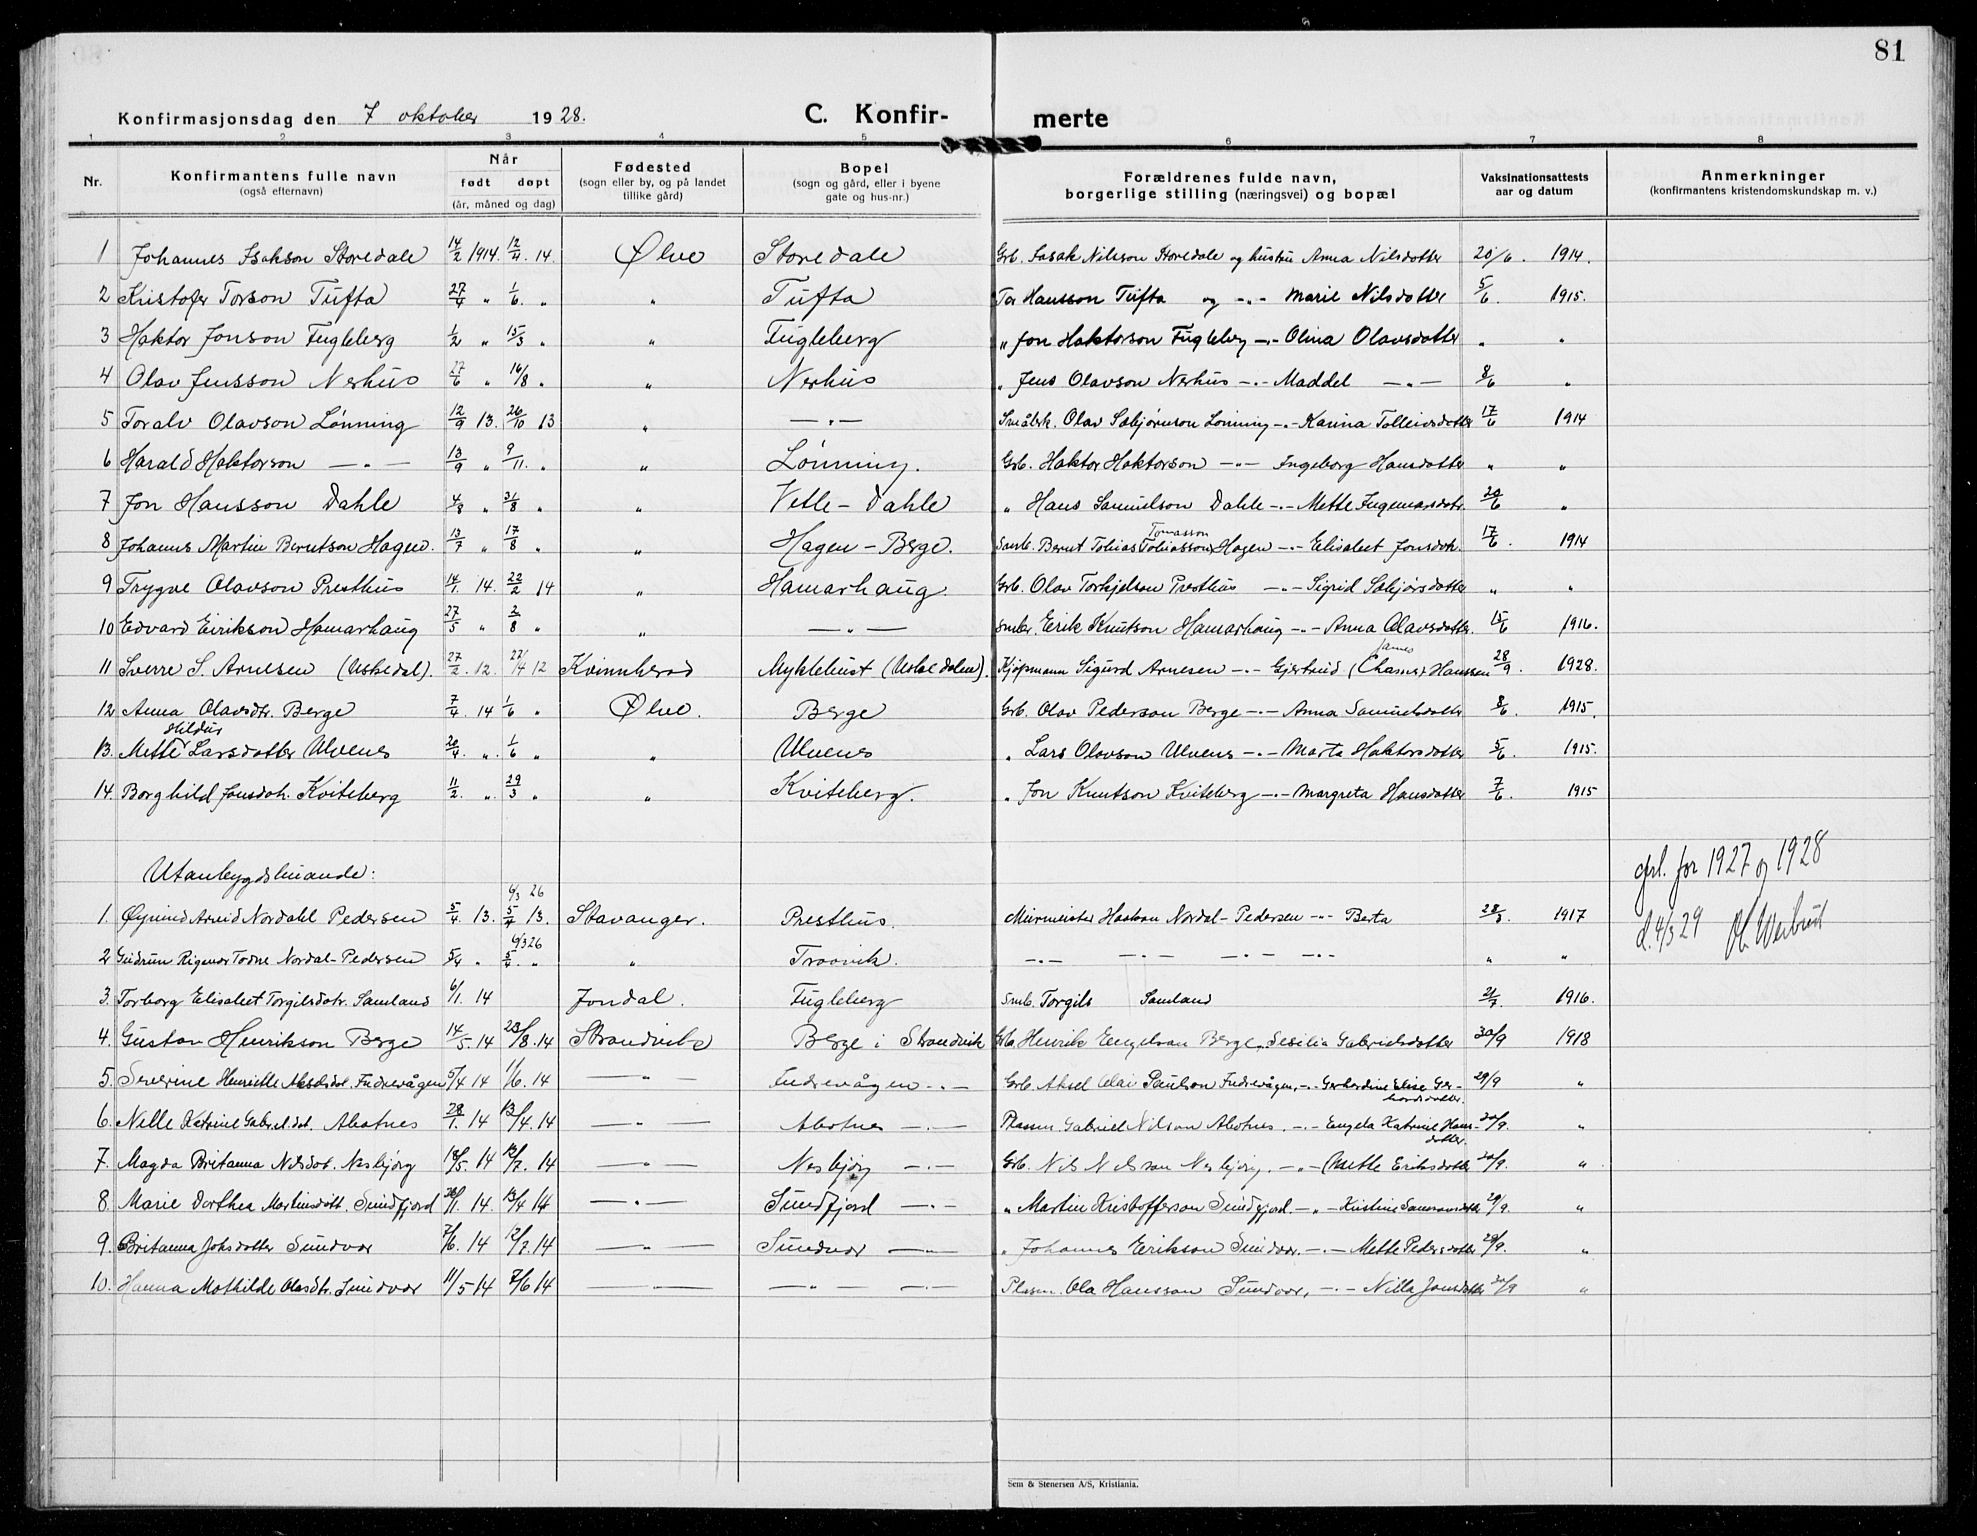 81
Konfirmasjonsdag den 7 oktober 1928. C. Konfir- merte
1 2 3 4 5 6 7 8
Nr. Konfirmantens fulle navn (også efternavn) Når født døpt (år, måned og dag) Fødested (sogn eller by, og på landet tillike gård) Bopel (sogn og gård, eller i byene gate og hus-nr.) Forældrenes fulde navn, borgerlige stilling (næringsvei) og bopæl Vaksinationsattests aar og datum Anmerkninger (konfirmantens kristendomskundskap m. v.)
1 Johannes Isakson Storedale 14/2 1914. 12/4 14. Ølve Storedale Grb. Isak Nilsson Storedale og hustru Anna Nilsdotter 20/6. 1914.
2 Kristofer Torson Tufta 27/4 " 1/6. " " Tufta Tor Hansson Tufta og -"- Marie Nilsdotter 5/6. 1915.
3 Haktor Jonson Fugleberg 1/2 " 15/3 " " Fugleberg " Jon Haktorson Fugleberg -"- Olina Olavsdotter " "
4 Olav Jensson Nerhus 27/6 " 16/8 " " Nerhus " Jens Olavson Nerhus -"- Maddel -"- 8/6 "
5 Toralv Olavson Lønning 12/9 13. 26/10 13 " -"- Småbrk. Olav Sæbjørnson Lønning -"- Karina Tolleivsdotter 17/6 1914
6 Harald Haktorson -"- 13/9 " 9/11. " " Lønning. Grb. Haktor Haktorson -"- Ingeborg Hansdotter " "
7 Jon Hansson Dahle 4/8 " 31/8 " " Vetle-Dahle " Hans Samuelson Dahle -"- Mette Ingemarsdotr. 20/6 "
8 Johannes Martin Berntson Hagen. 13/7 " 17/8 " " Hagen-Berge. Smb. Bernt Tobias Tobiasson Tomasson Hagen -"- Elisabet Jonsdotr. 17/6. 1914
9 Trygve Olavson Presthus 14/1 14. 22/2 14 " Hamarhaug Grb. Olav Torkjelson Presthus -"- Sigrid Sæbjørsdotter " "
10 Edvard Eirikson Hamarhaug 27/5 " 2/8 " " -"- Smbr. Eirik Knutson Hamarhaug -"- Anna Olavsdotter. 15/6 1916.
11 Sverre S. Arnesen (Uskedal). 27/2 12. 27/4 12 Kvinnherad Myklebust (Uskedalen). Kjøpmann Sigurd Arnesen -"- Gjertrud (Chasnes) James Hanssen 28/9. 1928.
12 Anna Olavsdtr. Berge 7/4. 14 1/6 " Ølve. Berge Grb. Olav Pederson Berge -"- Anna Samuelsdotter 8/6. 1915.
13. Mette Hildur Larsdotter Ulvenes 20/4. " 1/6 " " Ulvenes " Lars Olavson Ulvenes -"- Marta Haktorsdotter 5/6 1915.
14. Borghild Jonsdotr. Kviteberg 11/2. " 29/3 " " Kviteberg. " Jon Knutson Kviteberg -"- Margreta Hansdotter 7/6. 1915
Utanbygdsbuande:
gjel. for 1927 og 1928
1. Øyvind Arvid Nordahl Pedersen 5/4. 13. 6/3 26 5/4 13. Stavanger. Presthus. Murmeister Haakon Nordal-Pedersen -"- Berta 28/3. 1917
d. 4/3 29
2 Gudrun Rigmor Todne Nordal-Pedersen 5/4 " 6/3 26 5/4. " " Troovik. -"- -"- -"- -"- " "
3. Torborg Elisabet Torgilsdotr. Samland 6/1. 14 Jondal. Fugleberg Smb. Torgils Samland 21/7 1916.
4. Gustav Henrikson Berge 14/5. 14 23/8. 14 Strandvik Berge i Strandvik Grb. Henrik Engelsen Berge, Sesilia Gabrielsdotter 30/9 1918
5. Severine Henriette Akselsdot. Indrevågen 5/4 14 1/6. 14 -"- Indrevågen -"- Grb. Aksel Olai Paulson Indrevågen, -"- Gerhardine Elise Ger-hardsdotter. 29/9 "
6. Nelle Katrine Gabrielsdot. Alsotnes 28/1. 14 13/4. 14 -"- Alsotnes -"- Plassm. Gabriel Nilson Alsotnes. -"- Engela Katrine Hans-dotter. 30/9. "
7. Magda Britanna Nilsdot. Nesbjørg 18/5. 14 12/7. 14 -"- Nesbjørg -"- Grb. Nils Nilsson Nesbjørg. -"- Mette Eriksdotter 30/9. "
8. Marie Dorthea Martinsdott. Sundfjord 26/1. 14. 13/4 14 -"- Sundfjord -"- " Martin Kristofferson Sundfjord. -"- Kristine Samsonsdotter 29/9. "
9. Britanna Johsdotter Sundvor 7/6. 14 12/7. 14 -"- Sundvor -"- " Johannes Erikson Sundvor. -"- Mette Pedersdotter 29/9. "
10. Hanna Mathilde Olasdtr. Sundvor 11/5 14 7/6 14 -"- -"- -"- Plassm. Ola Hansson Sundvor, -"- Nilla Jonsdotter 30/9 "
Sem & Stenersen A/S, Kristiania.